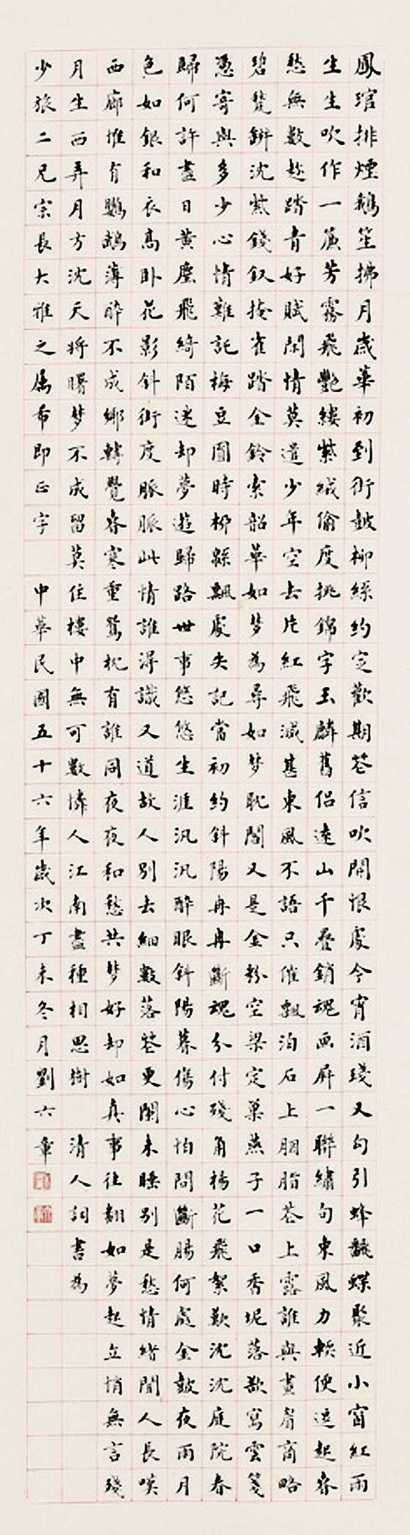 鳳琯排煙鵝笙拂月歲華初到街鼓柳絲約定歡期花信吹開恨處今宵酒琖又勾引蜂翻蝶聚近小窗紅雨
生生吹作一簾芳霧飛豔縷紫絨偷度挑錦字玉麟舊侶遠山千疊銷魂畫屏一聯繡句東風力輭便逗起春
愁無數趁踏青好賦閑情莫遣少年空去片紅飛減甚東風不語只催飄泊石上胭脂苔上露誰與畫眉商略
碧甃缾沈紫錢釵掩雀踏金鈴索韶華如夢為尋如夢耽閣又是金粉空梁定巢燕子一口香坭落欲寫雲箋
憑寄與多少心情難託梅豆圓時柳緜飄處失記當初約斜陽冉冉斷魂分付殘角楊花飛絮歎沈沈庭院春
歸何許盡日黃塵飛綺陌迷却夢遊歸路世事悠悠生涯汎汎醉眼斜陽暮傷心怕問斷腸何處金鼓夜雨月
色如銀和衣高臥花影斜街度脈脈此情誰得識又道故人別去細數落花更闌未睡別是愁情緒聞人長嘆
西廊惟有鸚鵡薄醉不成鄉轉覺春寒重鴛枕有誰同夜夜和愁共夢好却如真事往翻如夢起立悄無言殘
月生西弄月方沈天將曙夢不成留莫住樓中無可數憐人江南盡種相思樹 清人詞書為
少旅二兄宗長大雅之屬希即正字 中華民國五十六年歲次丁未冬月劉六章